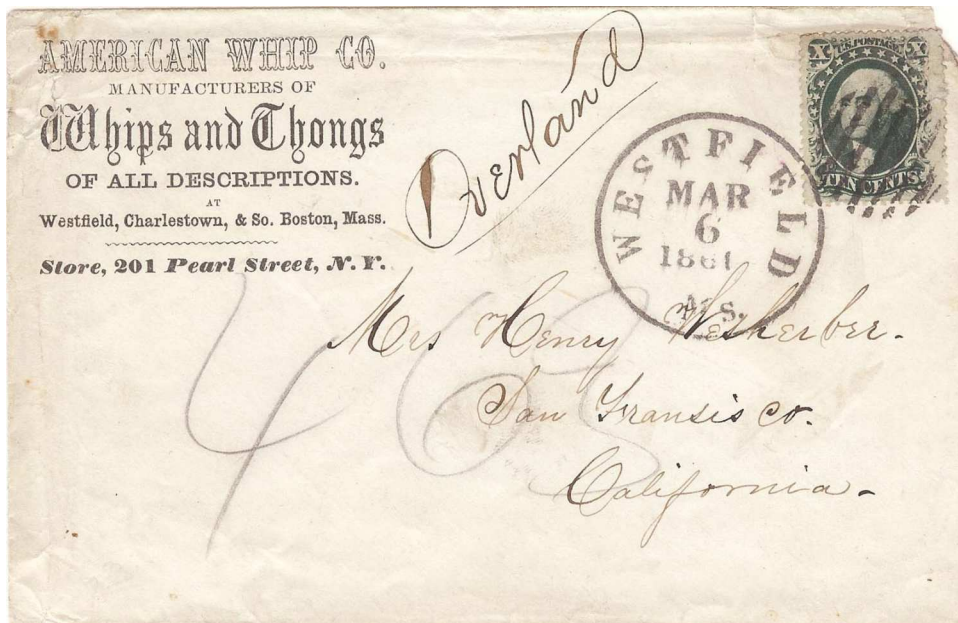 AMERICAN WHIP CO.
MANUFACTURERS OF
Whips and Thongs
OF ALL DESCRIPTIONS.
AT
Westfield, Charlestown, & So. Boston, Mass.
Store, 201 Pearl Street, N.Y.
Overland
WESTFIELD
MAR
6
1861
MS.
X U.S. POSTAGE X
TEN CENTS
Mrs Henry Wetherbee.
San Fransisco.
California.
463